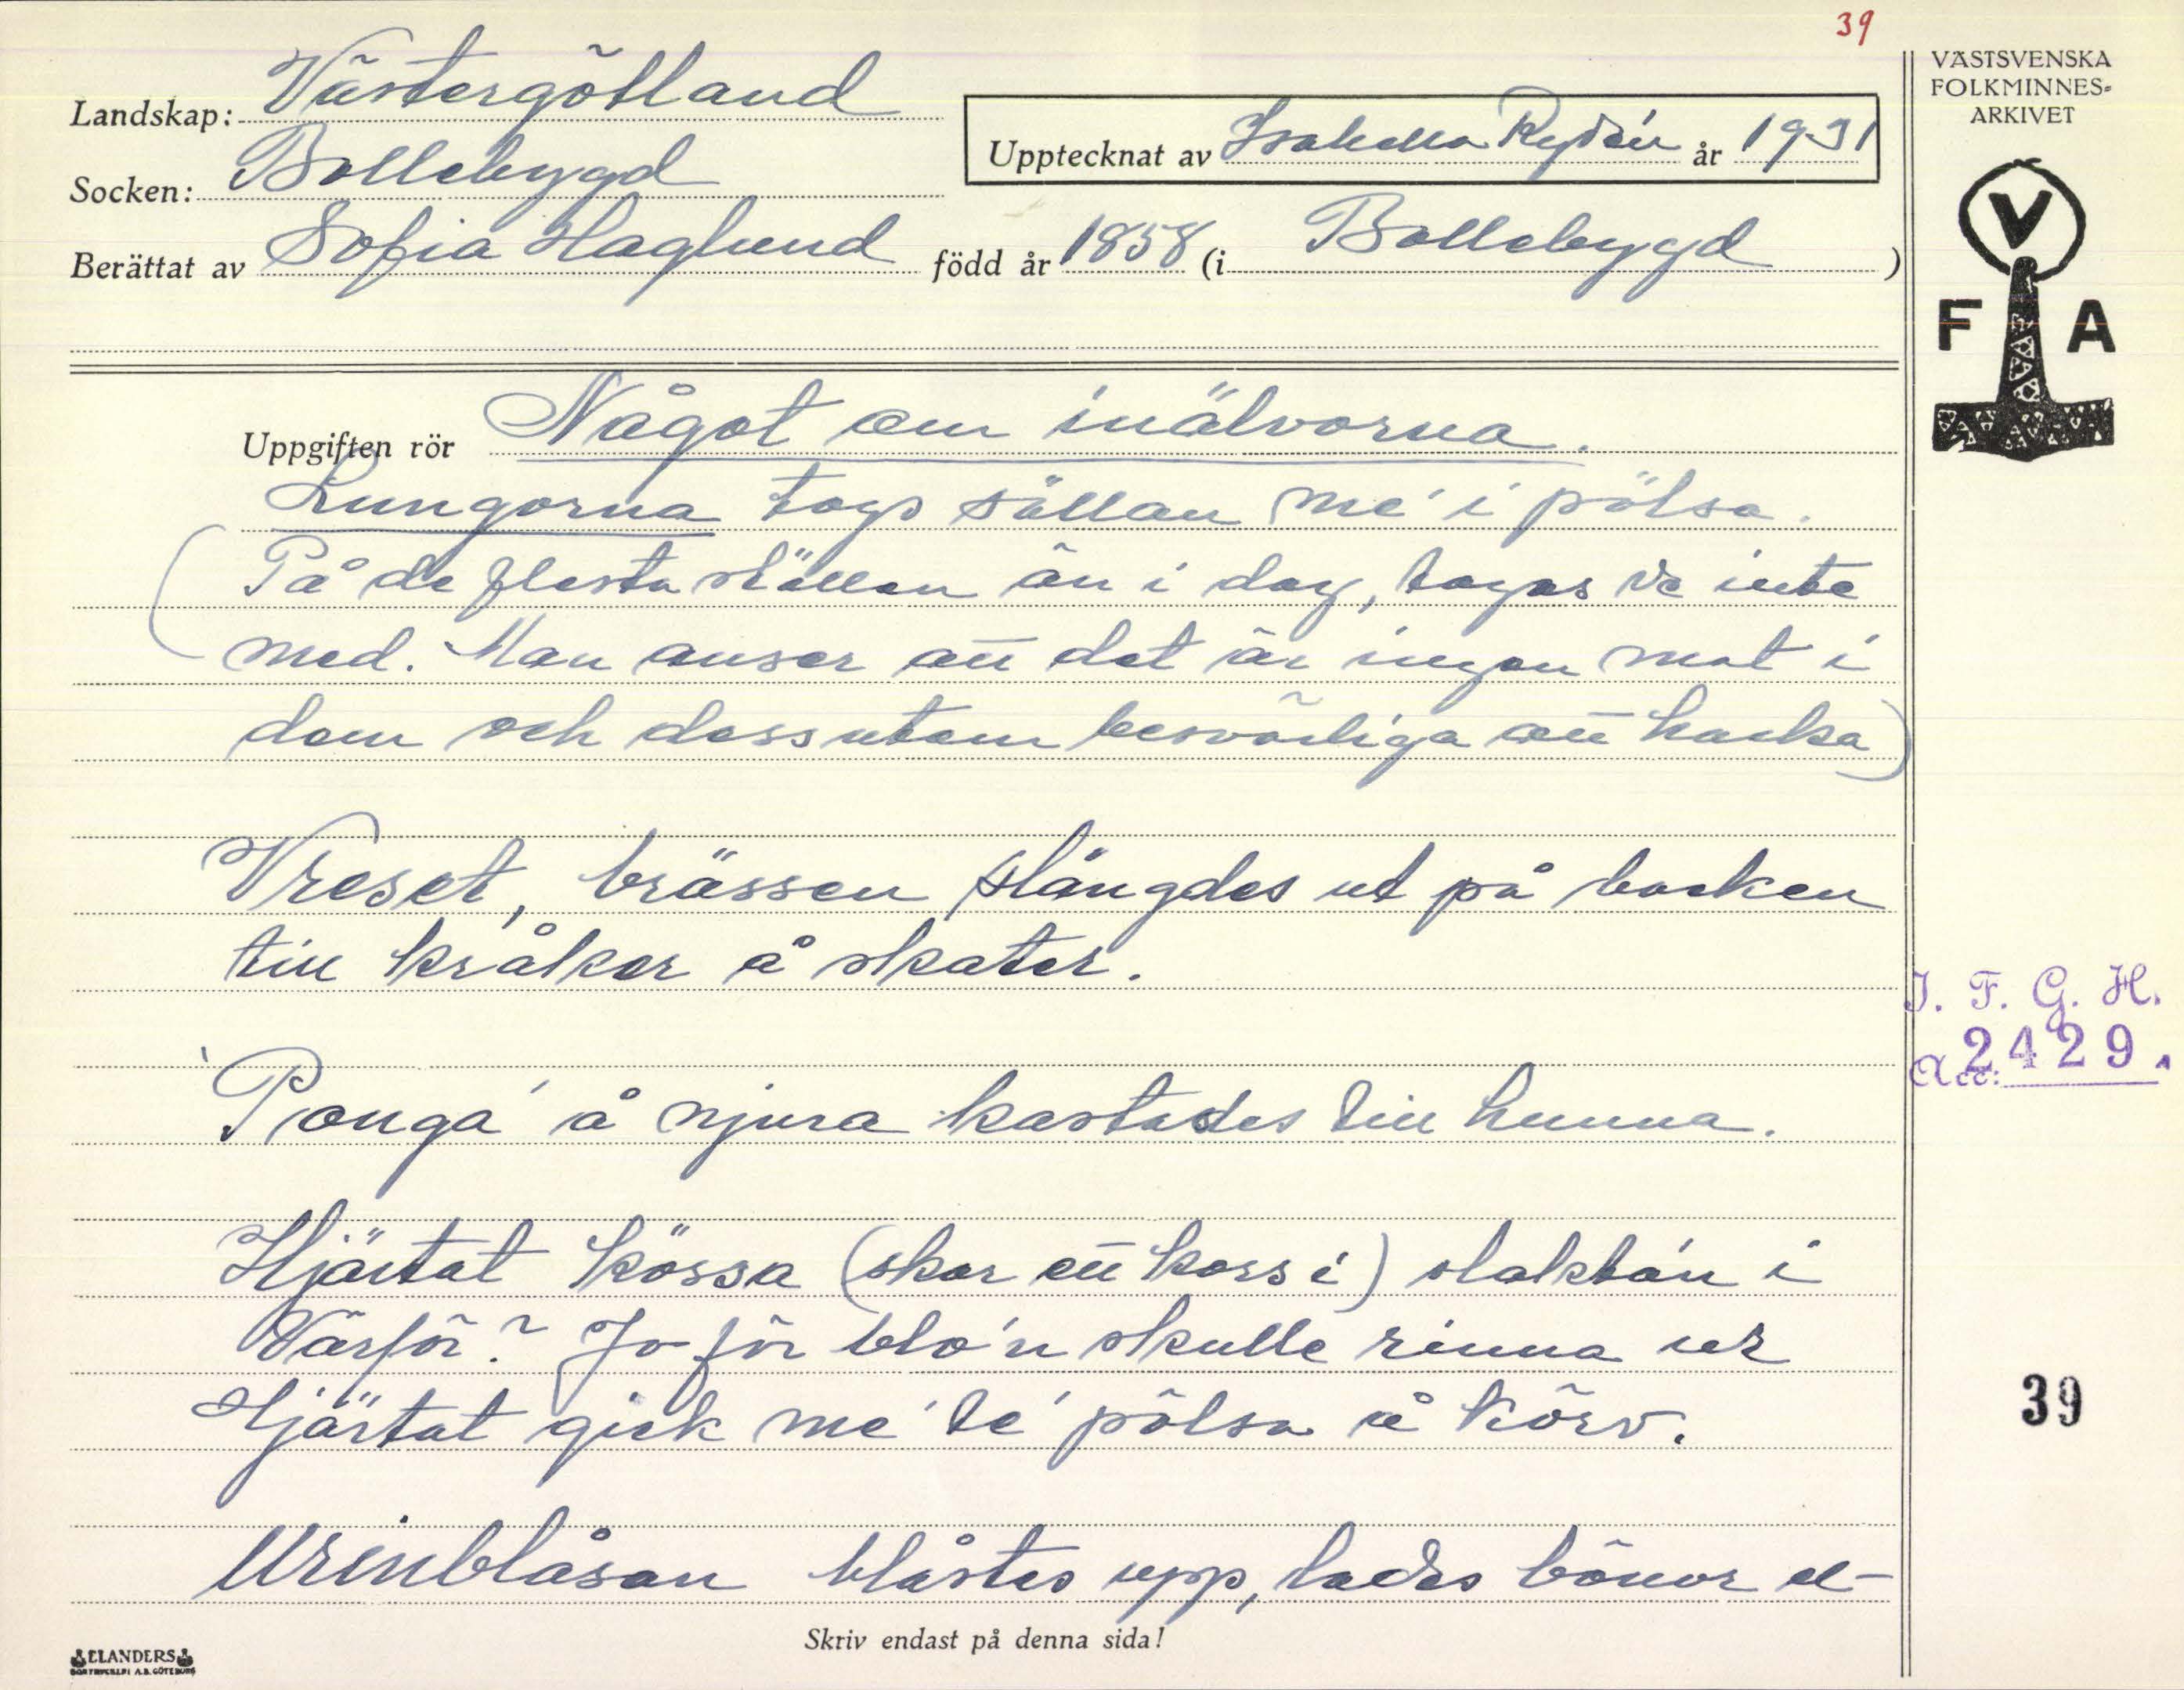 39
Landskap: Västergötland
Socken: Bollebygd
Upptecknat av Isabella Rydén år 1931
Berättat av Sofia Haglund född år 1858 (i Bollebygd)
VÄSTSVENSKA
FOLKMINNES-
ARKIVET
V
F A
Uppgiften rör Något om inälvorna.
Lungorna togs sällan me' i pölsa.
(På de flesta ställen än i dag, tagas de inte
med. Man anser att det är ingen mat i
dem och dessutom besvärliga att hacka)
Vreset, brässen slängdes ut på backen
till kråkor å skater.
'Ponga' å njura kastades till hunna.
Hjärtat kössa (skar ett kors i) slaktán i
Värför? Jo för blo'n skulle rinna ur
Hjärtat gick me' te' pölsa å körv.
Urinblåsan blåstes upp, lades bönor el-
I. F. G. H.
Acc: 2429.
39
Skriv endast på denna sida!
ELANDERS
BOKTRYCKERI A.B. GÖTEBORG